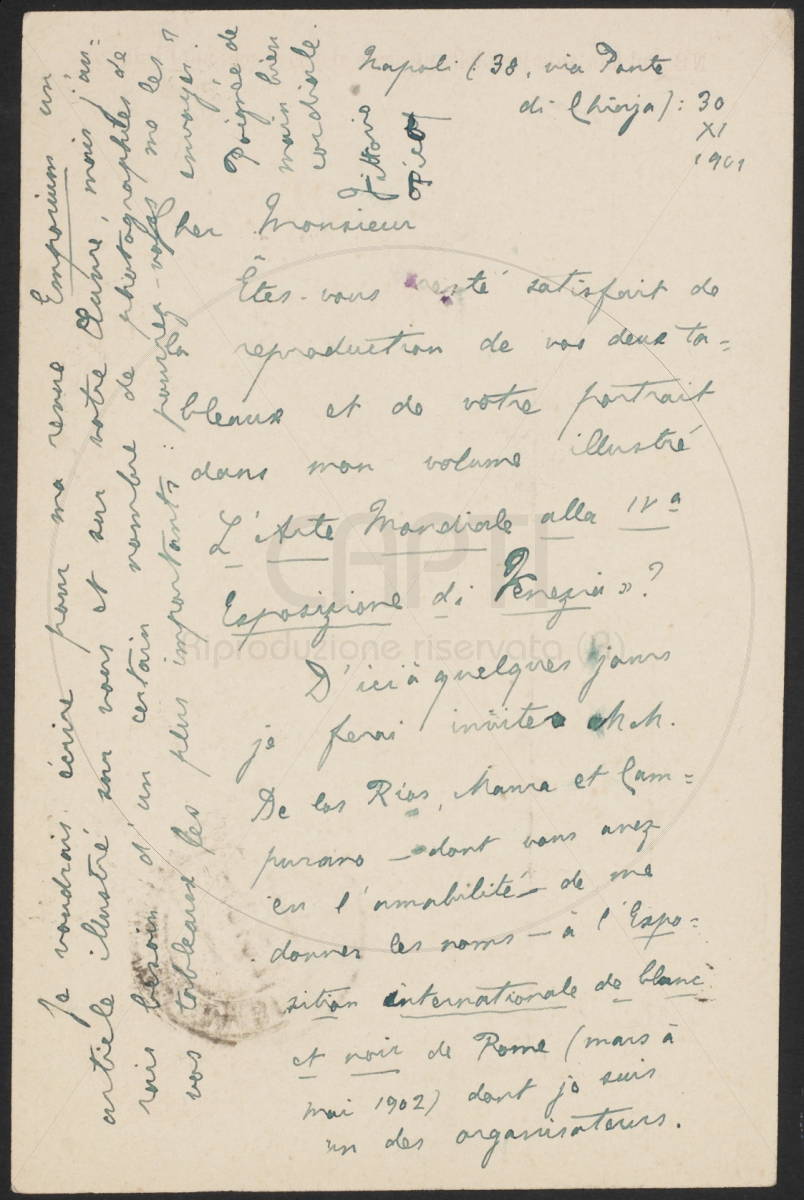 Napoli (38, via Ponte
di Chiaja): 30
XI
1901
Cher Monsieur
Êtes-vous resté satisfait de
la reproduction de vos deux ta=
bleaux et de votre portrait
dans mon volume illustré
L'Arte Mondiale alla IVa
Esposizione di Venezia » ?
D'ici à quelques jours
je ferai inviter M.M.
De los Rios, Maura et Cam=
puzano — dont vous avez
eu l'amabilité — de me
donner les noms — à l'Expo=
sition internationale de blanc
et noir de Rome (mars à
mai 1902) dont je suis
un des organisateurs.
Je voudrais écrire pour ma revue Emporium un
article illustré sur vous et sur votre œuvre, mais j'au=
rais besoin d'un certain nombre de photographies de
vos tableaux les plus importants : pourrez-vous me les
envoyer ?
Poignée de
main bien
cordiale.
Vittorio
Pica
CAPTI
Riproduzione riservata (®)